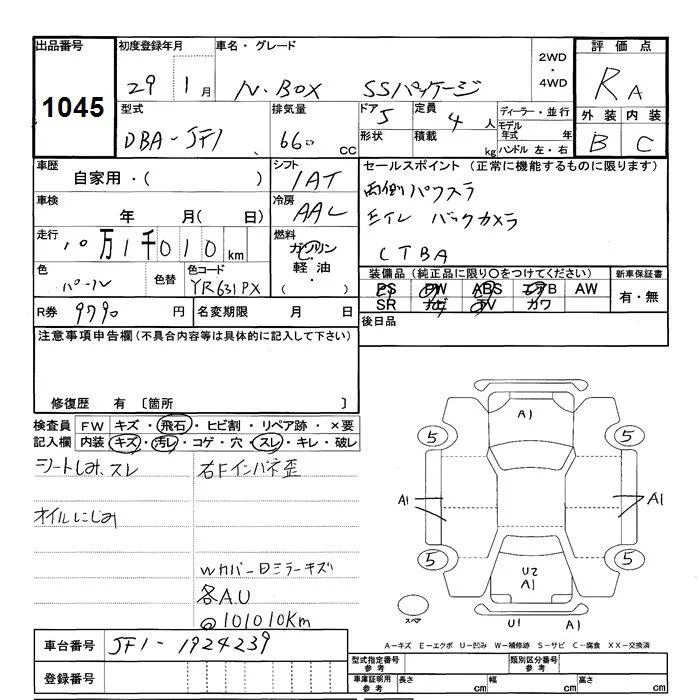 出品番号 初度登録年月 車名・グレード 2WD ・ 4WD 評価点
1045 29 1月 N・BOX SSパッケージ RA
型式 排気量 ドア 定員 ディーラー・並行 外装 内装
DBA-JF1 660 cc 5 4人 モデル年式 年 B C
形状 積載 kg ハンドル 左・右
車歴 シフト セールスポイント (正常に機能するものに限ります)
自家用・( ) IAT 両側パワスラ
車検 冷房
年 月( 日) AAC Eイレ バックカメラ
走行 燃料
10万1千010km ガソリン 軽油・( ) CTBA
色 色替 色コード 装備品 (純正品に限り○をつけてください) 新車保証書
パール YR631PX PS PW ABS エアB AW 有・無
SR ナビ TV カワ
R券 9790円 名変期限 月 日 後日品
注意事項申告欄(不具合内容等は具体的に記入して下さい)
修復歴 有 〔箇所 〕
検査員 FW キズ・飛石・ヒビ割・リペア跡・×要
記入欄 内装 キズ・汚レ・コゲ・穴・スレ・キレ・破レ
シートしみ、スレ 右Fインパネ歪
オイルにじみ
Wカバー・Dミラーキズ
各A.U
@101010Km
A1
5 5
A1 A1
5 5
U2
A1
スペア U1 A1
車台番号 JF1-1924239
A-キズ E-エクボ U-凹み W-補修跡 S-サビ C-腐食 XX-交換済
登録番号 型式指定番号 参考 類別区分番号 参考
車庫証明用 参考 長さ cm 幅 cm 高さ cm